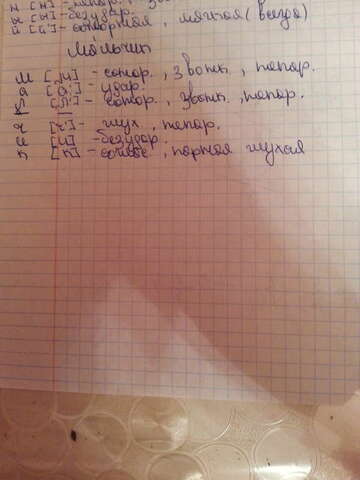 н [н] - непар., зв
ы [ы] - безудар.
й [й'] - сонорная, мягкая (всегда)
Мальчик
м [м] - сонор., звонк., непар.
а [а́] - удар.
л [л'] - сонор., звонк., непар.
ь —
ч [ч'] - глух., непар.
и [и] - безудар.
к [к] - парная глухая